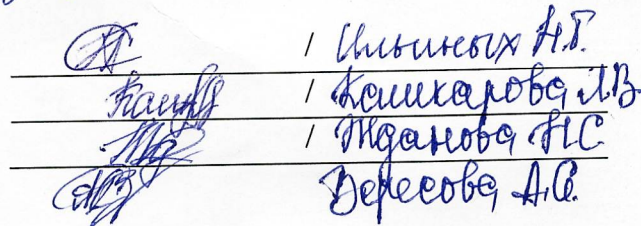 / Ильиных Н.Г.
/ Кашкарова Л.В.
/ Жданова Н.С.
Вересова А.С.